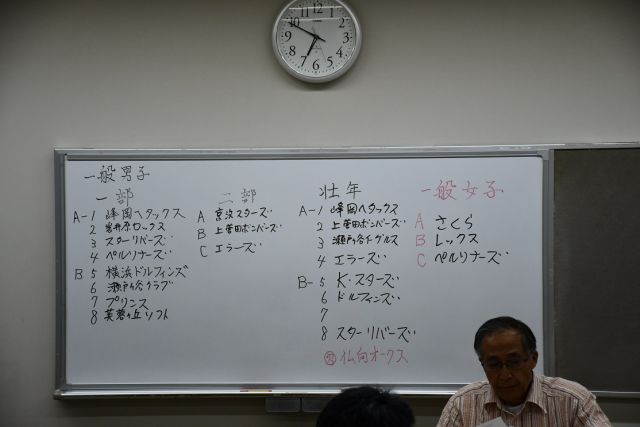 一般男子
一部
A-1 峰岡ヘタックス
2 岩井原ロックス
3 スターリバーズ
4 ペルリナーズ
B 5 横浜ドルフィンズ
6 瀬戸ヶ谷クラブ
7 プリンス
8 芙蓉ヶ丘ソフト
二部
A 京浜スターズ
B 上菅田ボンバーズ
C エラーズ
壮年
A-1 峰岡ヘタックス
2 上菅田ボンバーズ
3 瀬戸ヶ谷イーグルス
4 エラーズ
B- 5 K・スターズ
6 ドルフィンズ
7
8 スターリバーズ
仏向オークス
一般女子
A さくら
B レックス
C ペルリナーズ
12
1
2
3
4
5
6
7
8
9
10
11